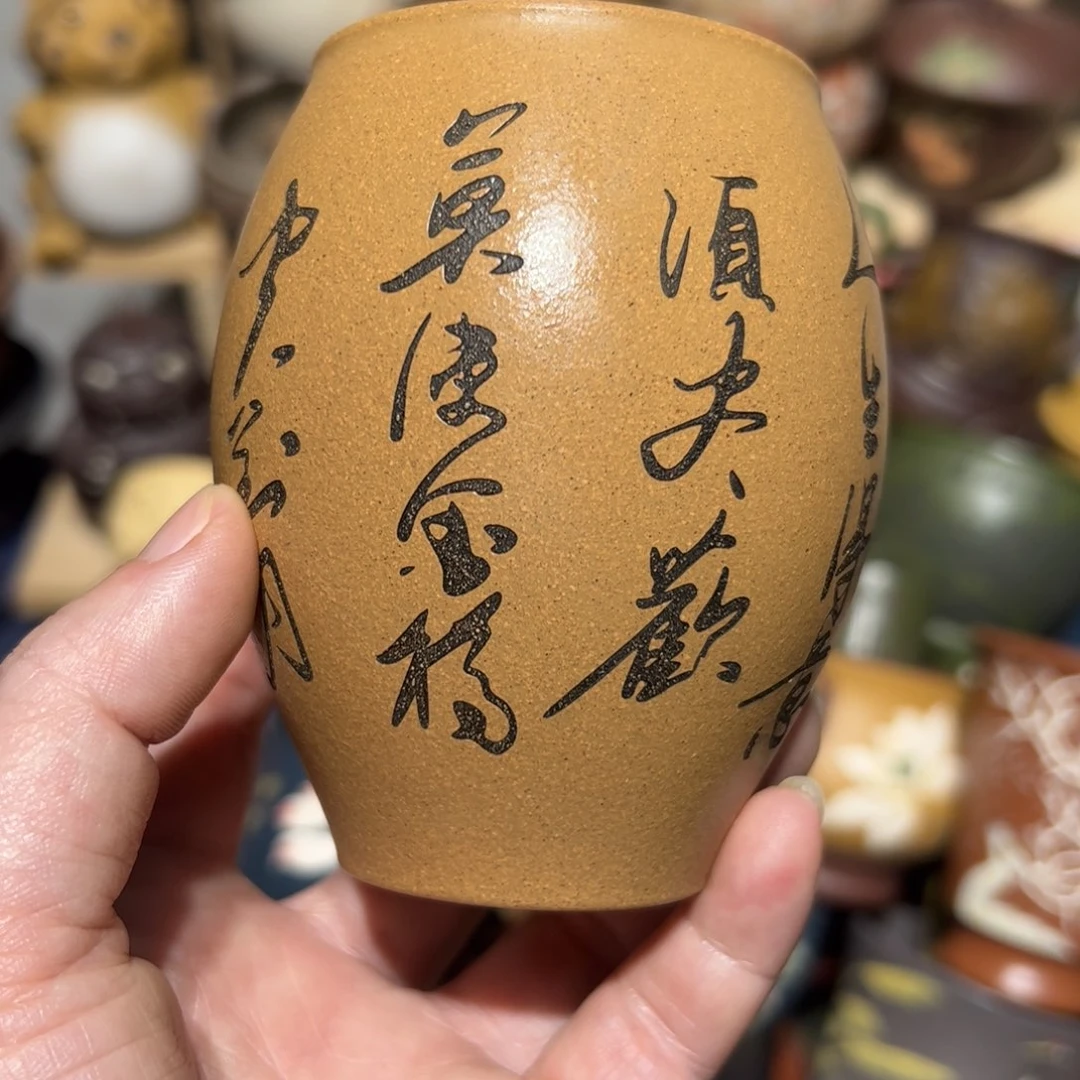 人生得意
須尽歡
莫使金樽
空对月